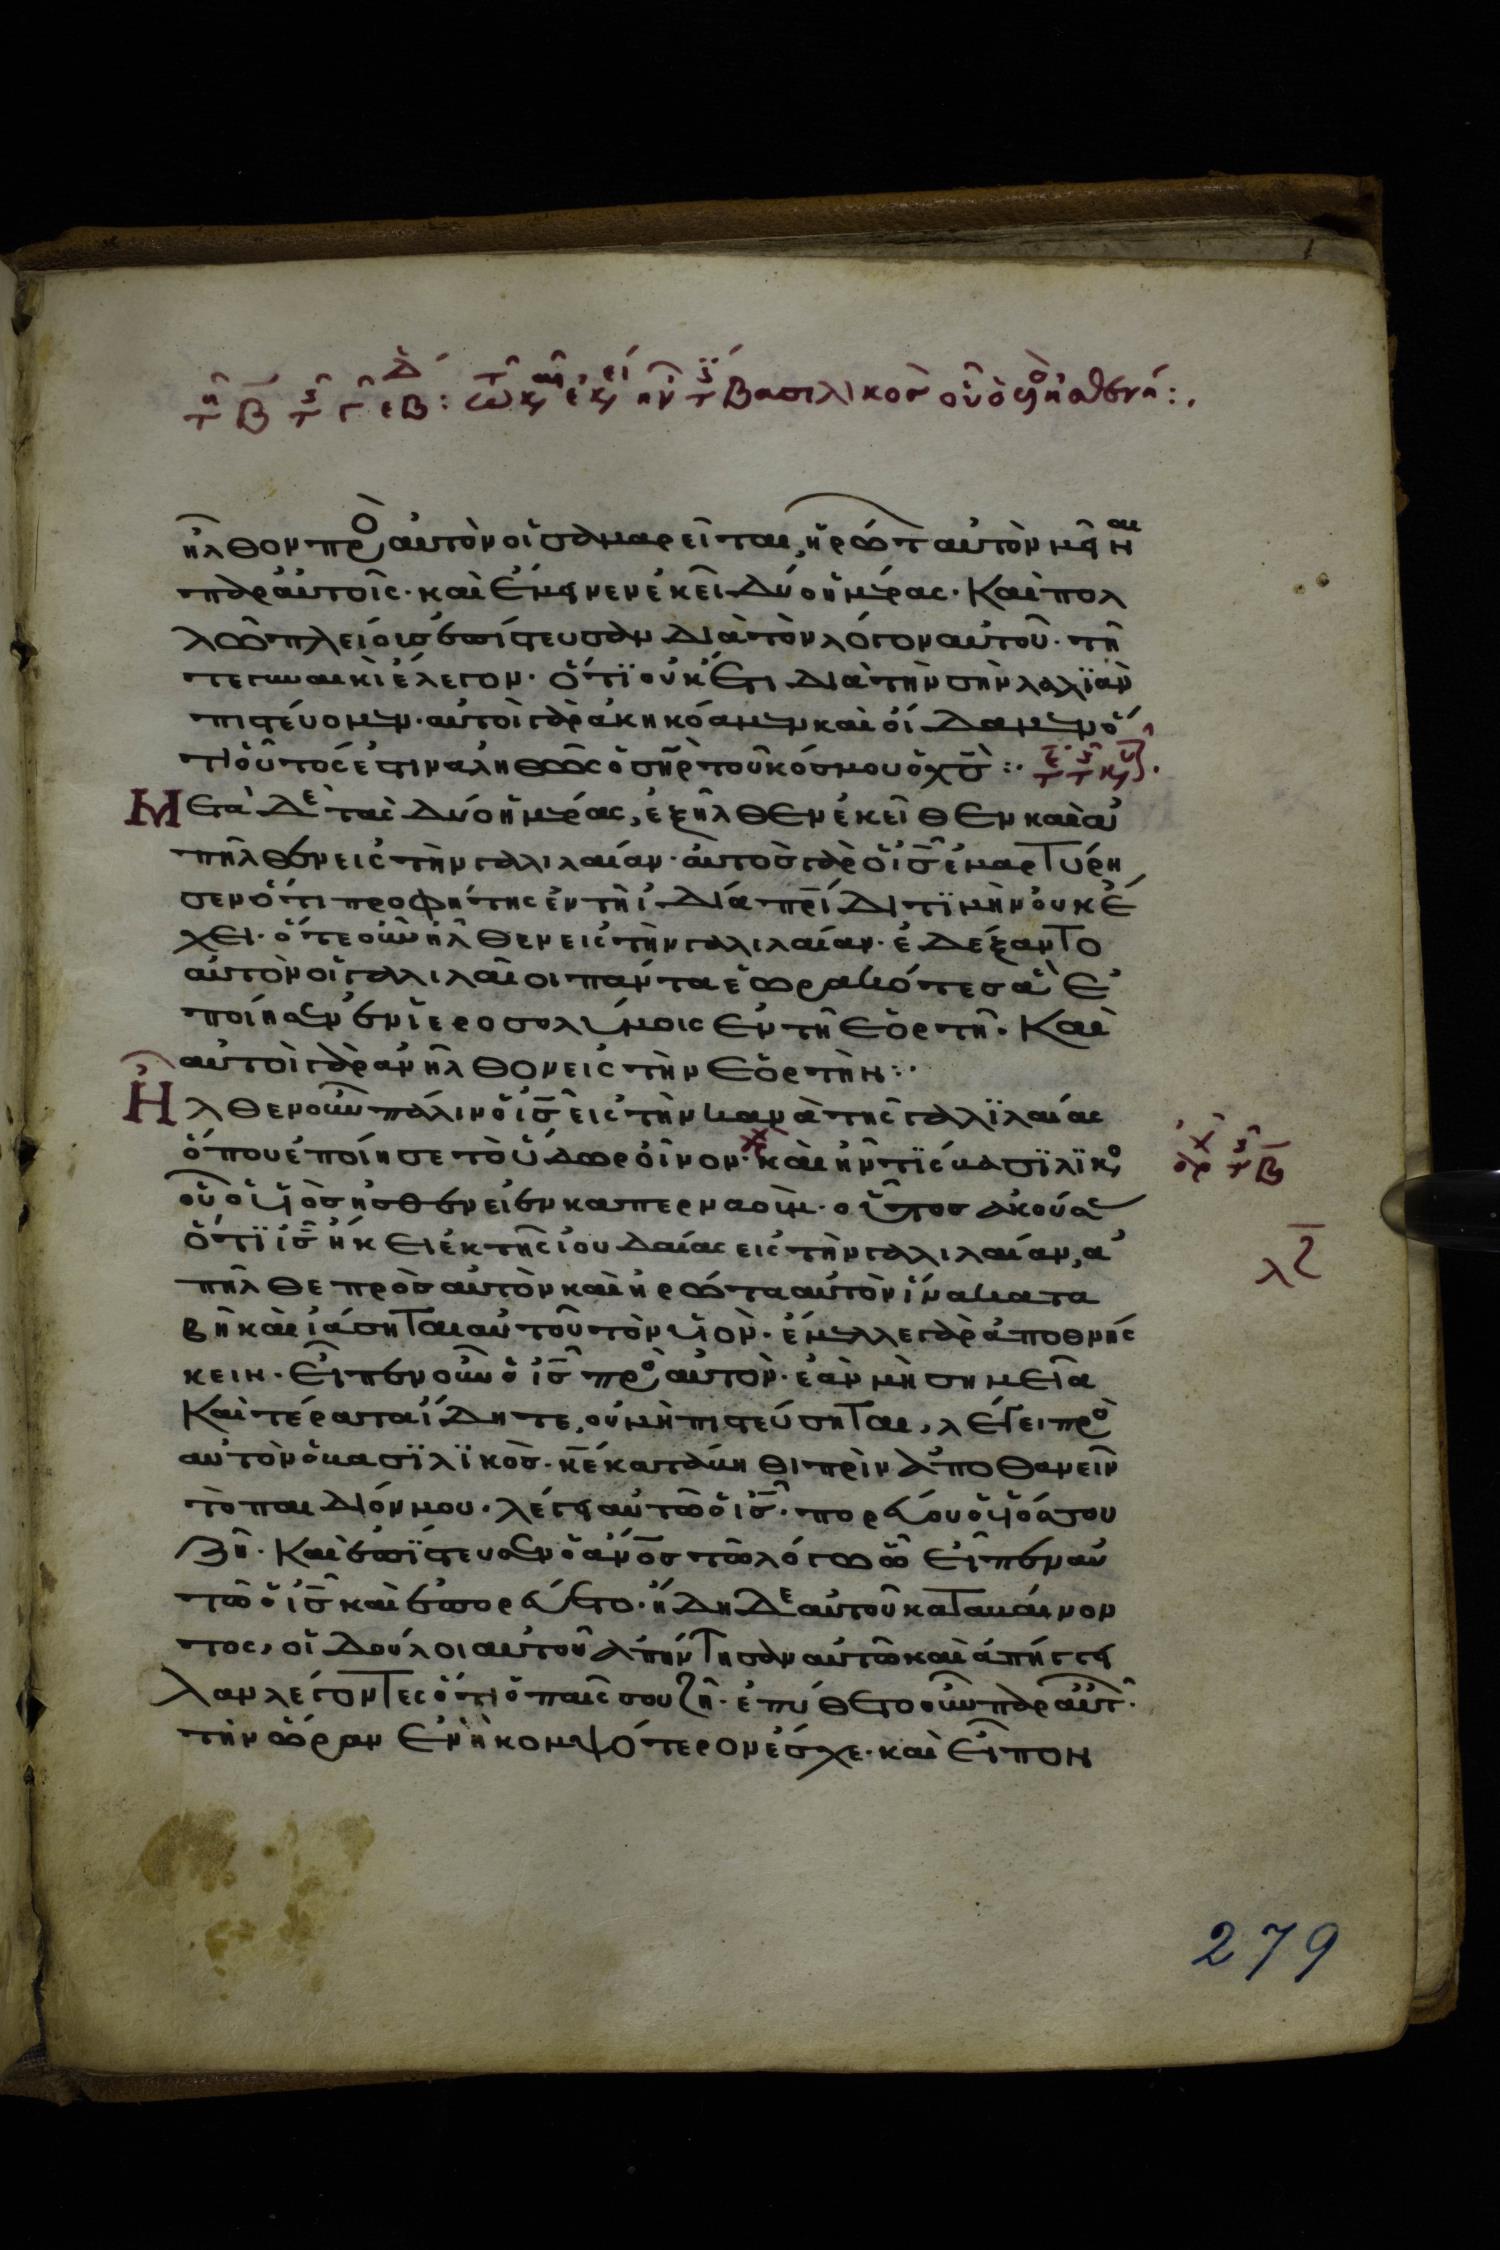 βασιλικὸσ οὗ ὁ ὑιὸσ ἠσθένει:
ἦλθον πρὸ αὐτὸν οἱ σαμαρεῖται, ἠρώτ αὐτὸν μεῖναι
παραὐτοῖς· καὶ ἔμεινεν ἐκεῖ δύο ἡμέρας· Καὶ πολ
λῶ πλείοισ ἐπίστευσαν διὰ τὸν λόγον αὐτοῦ· τῆ
τε γυναικὶ ἔλεγον· ὅτϊ οὐκέτι διὰ τὴν σὴν λαλϊὰν
πιστεύομεν· αὐτοὶ γὰρ ἀκηκόαμεν καὶ οἴδαμεν ὅ
τι οὗτός ἐστιν ἀληθῶς ὁ σῆρ τοῦ κόσμου ὁ χσ̅:·
Μετὰ δὲ τὰς δύο ἡμέρας, ἐξῆλθεν ἐκεῖθεν καὶ ἀ
πῆλθεν εἰς τὴν γαλιλαίαν· ἀυτὸσ γὰρ ὁ ἰσ̅ ἐμαρτύρη
σεν ὅτι προφήτης ἐν τῆ ἰδία πρίδι τϊμὴν οὐκ ἔ
χει· ὅτε οὖν ἦλθεν εἰς τὴν γαλιλαίαν· ἐδέξαντο
αὐτὸν οἱ γαλιλαῖοι πάντα ἑωρακότεσ ἃ ἐ
ποίησεν ἐν ἱεροσολύμοις ἐν τῆ ἑορτῆ· Καὶ
αὐτοὶ γὰρ ἀνῆλθον εἰς τὴν ἑορτὴν:·
Ἦλθεν οὖν πάλιν ὁ ἰσ̅ εἰς τὴν κανὰ τῆς γαλϊλαίας
ὅπου ἐποίησε τὸ ὕδωρ οἶνον· καὶ ἦν τϊς βασϊλϊκὸ
οὗ ὁ ὑιὸσ ἠσθένει ἐν καπερναοὺμ· οὗτοσ ἀκούσα
ὅτϊ ἰσ̅ ἥκει ἐκ τῆς ἰουδαίας εἰς τὴν γαλιλαίαν, ἀ
πῆλθε πρὸσ αὐτὸν καὶ ἠρώτα αὐτὸν ἵνα κατα
βῆ καὶ ἰάσηται αὐτοῦ τὸν ὑιὸν· ἔμελλε γὰρ ἀποθνήσ
κειν· Εἶπεν οὖν ὁ ἰσ̅ πρὸ αὐτὸν· ἐὰν μὴ σημεῖα
Καὶ τέρατα ἴδητε, οὐ μὴ πιστεύσηται, λέγει πρὸ
αὐτὸν ὁ βασϊλϊκὸσ· κ̅ε κατάβηθι πρὶν ἀποθανεῖν
τὸ παιδίον μου· λέγει αὐτῶ ὁ ἰσ̅· πορεύου ὁ ὑιόσ σου
ζῆ· Καὶ ἐπίστευσεν ὁ ἄνοσ τῶ λόγω ὧ εἶπεν αὐ
τῶ ὁ ἰσ̅ καὶ ἐπορεύετο· ἤδη δὲ αὐτοῦ καταβαίνον
τος, οἱ δοῦλοι αὐτοῦ ἀπήντησαν αὐτῶ καὶ ἀπήγγει
λαν λέγοντες ὅτι ὁ παῖς σου ζῆ· ἐπύθετο οὖν παραὐτ·
τὴν ὥραν ἐν ἧ κομψότερον ἔσχε· καὶ εἶπον
λζ
279